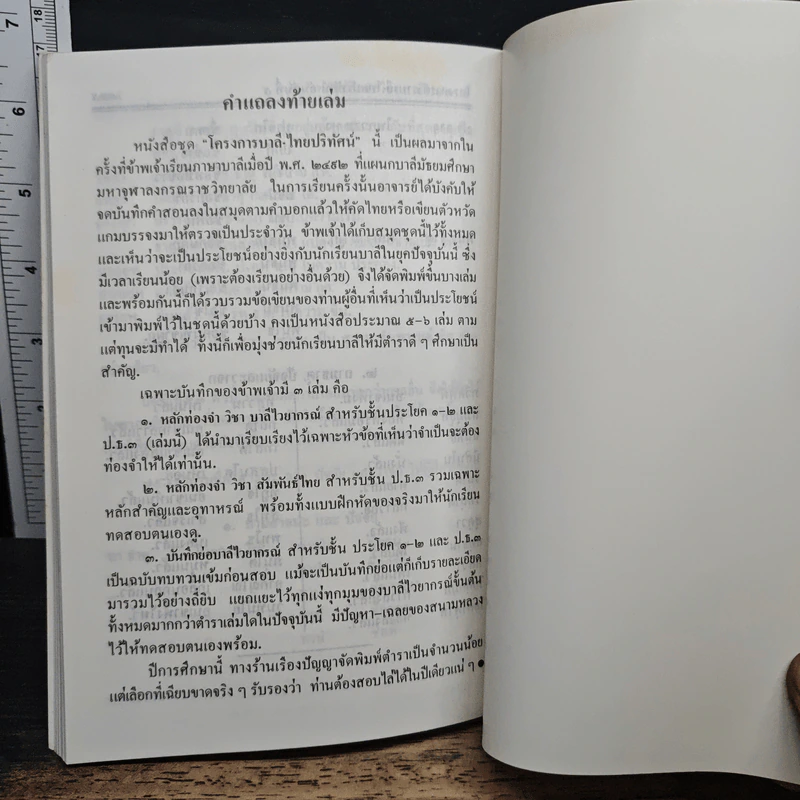 คำแถลงท้ายเล่ม
หนังสือชุด "โครงการบาลี-ไทยปริทัศน์" นี้ เป็นผลมาจากใน
ครั้งที่ข้าพเจ้าเรียนภาษาบาลีเมื่อปี พ.ศ. ๒๔๙๒ ที่แผนกบาลีมัธยมศึกษา
มหาจุฬาลงกรณราชวิทยาลัย ในการเรียนครั้งนั้นอาจารย์ได้บังคับให้
จดบันทึกคำสอนลงในสมุดตามคำบอกแล้วให้คัดไทยหรือเขียนตัวหวัด
แกมบรรจงมาให้ตรวจเป็นประจำวัน ข้าพเจ้าได้เก็บสมุดชุดนี้ไว้ทั้งหมด
และเห็นว่าจะเป็นประโยชน์อย่างยิ่งกับนักเรียนบาลีในยุคปัจจุบันนี้ ซึ่ง
มีเวลาเรียนน้อย (เพราะต้องเรียนอย่างอื่นด้วย) จึงได้จัดพิมพ์ขึ้นบางเล่ม
และพร้อมกันนี้ก็ได้รวบรวมข้อเขียนของท่านผู้อื่นที่เห็นว่าเป็นประโยชน์
เข้ามาพิมพ์ไว้ในชุดนี้ด้วยบ้าง คงเป็นหนังสือประมาณ ๕-๖ เล่ม ตาม
แต่ทุนจะมีทำได้ ทั้งนี้ก็เพื่อมุ่งช่วยนักเรียนบาลีให้มีตำราดี ๆ ศึกษาเป็น
สำคัญ.
เฉพาะบันทึกของข้าพเจ้ามี ๓ เล่ม คือ
๑. หลักท่องจำ วิชา บาลีไวยากรณ์ สำหรับชั้นประโยค ๑-๒ และ
ป.ธ.๓ (เล่มนี้) ได้นำมาเรียบเรียงไว้เฉพาะหัวข้อที่เห็นว่าจำเป็นจะต้อง
ท่องจำให้ได้เท่านั้น.
๒. หลักท่องจำ วิชา สัมพันธ์ไทย สำหรับชั้น ป.ธ.๓ รวมเฉพาะ
หลักสำคัญและอุทาหรณ์ พร้อมทั้งแบบฝึกหัดของจริงมาให้นักเรียน
ทดสอบตนเองดู.
๓. บันทึกย่อบาลีไวยากรณ์ สำหรับชั้น ประโยค ๑-๒ และ ป.ธ.๓
เป็นฉบับทบทวนเข้มก่อนสอบ แม้จะเป็นบันทึกย่อแต่ก็เก็บรายละเอียด
มารวมไว้อย่างถี่ยิบ แยกแยะไว้ทุกแง่ทุกมุมของบาลีไวยากรณ์ขั้นต้น
ทั้งหมดมากกว่าตำราเล่มใดในปัจจุบันนี้ มีปัญหา-เฉลยของสนามหลวง
ไว้ให้ทดสอบตนเองพร้อม.
ปีการศึกษานี้ ทางร้านเรืองปัญญาจัดพิมพ์ตำราเป็นจำนวนน้อย
แต่เลือกที่เฉียบขาดจริง ๆ รับรองว่า ท่านต้องสอบไล่ได้ในปีเดียวแน่ ๆ ●
7
6
5
4
3
2
18
17